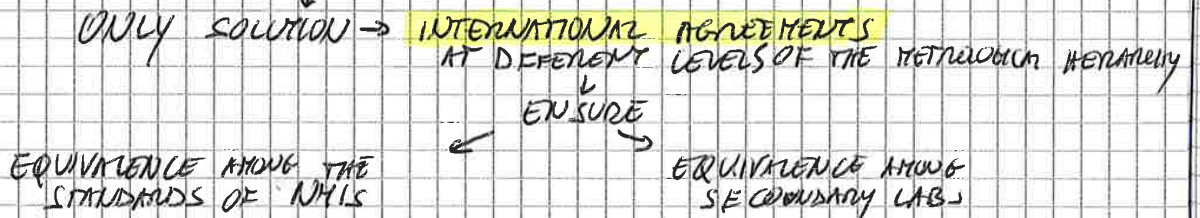 ONLY SOLUTION → INTERNATIONAL AGREEMENTS
AT DIFFERENT LEVELS OF THE METROLOGICAL HIERARCHY
↓
ENSURE
↙ ↘
EQUIVALENCE AMONG THE EQUIVALENCE AMONG
STANDARDS OF NMIS SECONDARY LABS